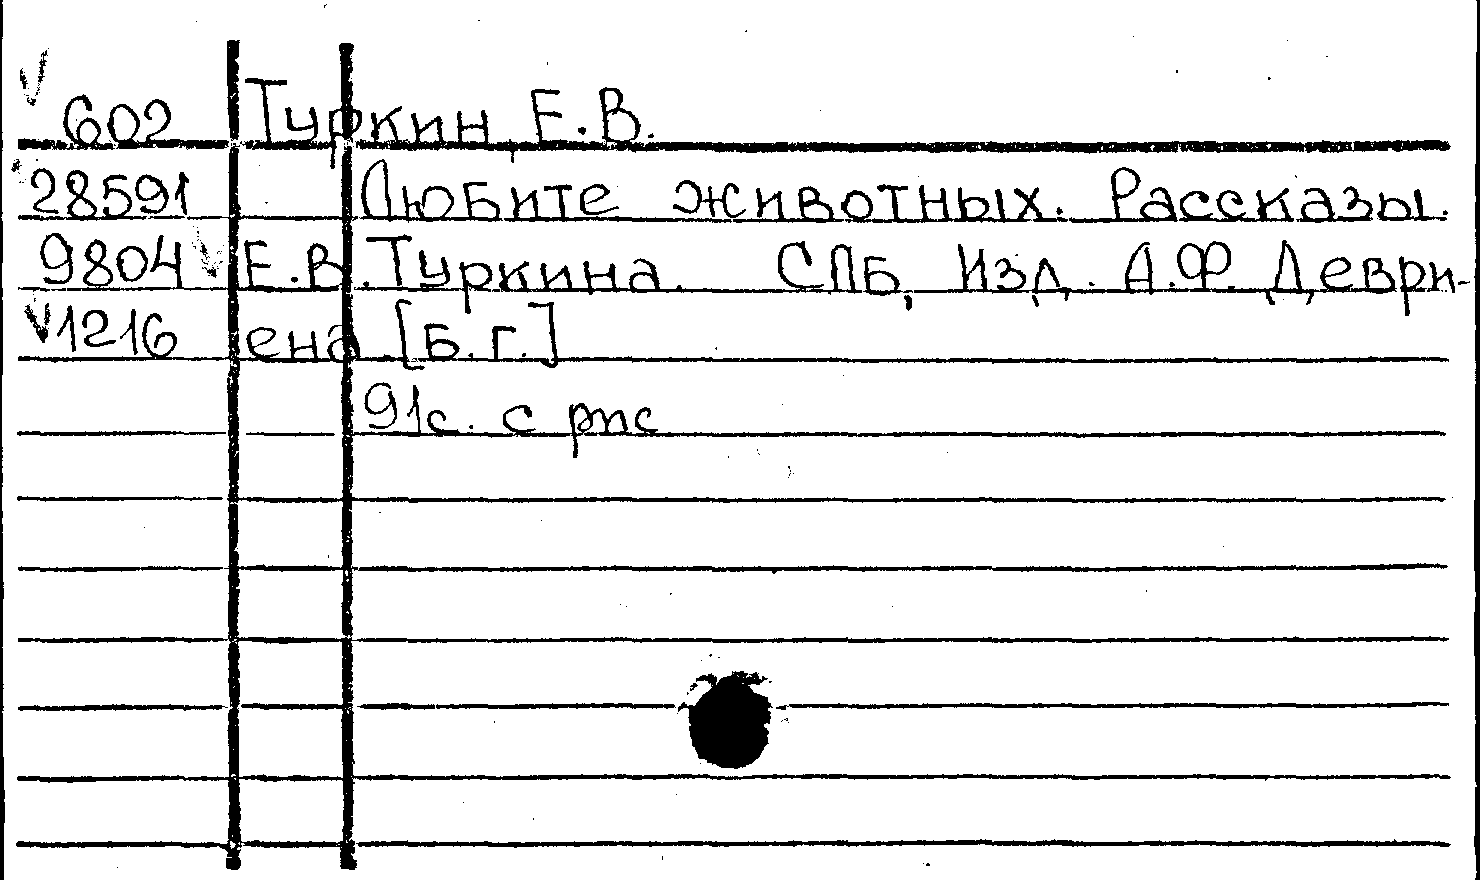 602 Туркин, Е.В.
28591 Любите животных. Рассказы.
9804 Е.В.Туркина. СПБ, Изд. А.Ф. Деври-
1216 ена [Б.г.]
91с. с рис